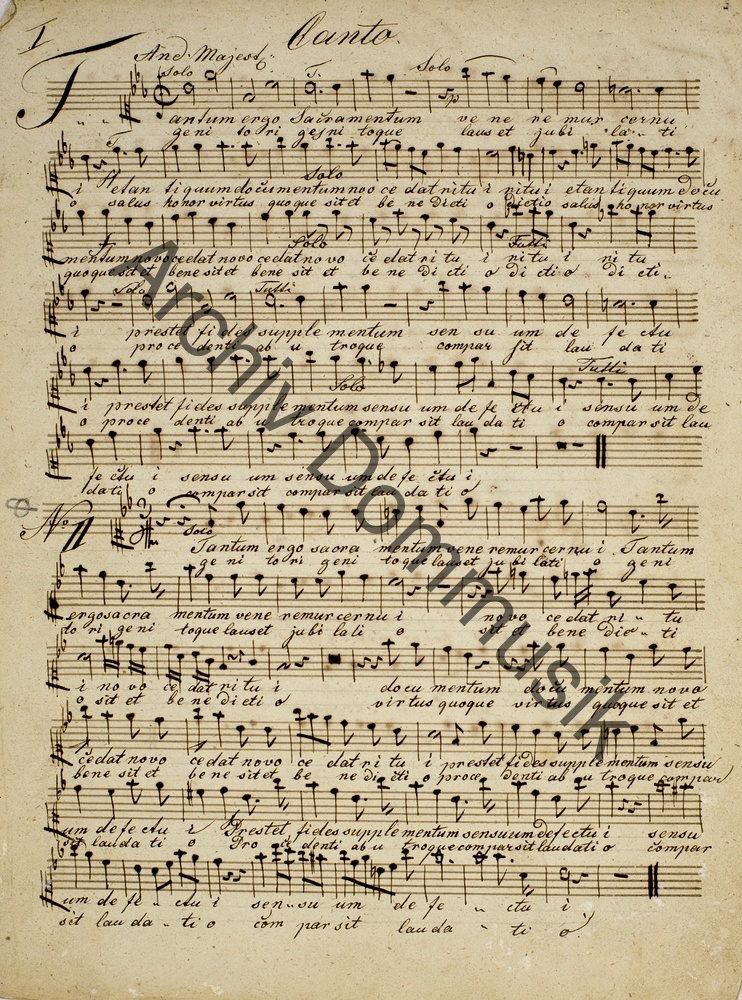 I
Canto.
And. Majest.
Solo T. Solo
Tantum ergo Sacramentum ve ne re mur cernu
geni to ri geni toque laus et jubi la - ti
T. Solo
i et an tiquum documentum novo ce dat ritu i ritu i et an tiquum docu
o salus honor virtus quoque sit et be ne dicti o dictio salus honor virtus
Solo Tutti
mentum novo cedat novo cedat no vo ce dat ri tu i ri tu i ri tu
quoque sit et bene sit et bene sit et be ne di cti o di cti o di cti -
Solo Tutti
i prestet fi des supple mentum sen su um de fe ctu
o proce denti ab u troque compar sit lau da ti
Solo Tutti
i prestet fides supple mentum sensu um de fe ctu i sensu um de
o proce denti ab u troque compar sit lau da ti o compar sit lau
fe ctu i sensu um sensu um de fe ctu i
dati o compar sit compar sit lau da ti o
No II
Solo
Tantum ergo sacra mentum vene remur cernu i Tantum
ge ni to ri geni toque laus et ju bi lati o geni
ergo sacra mentum vene remur cernu i no vo ce dat ri - tu
to ri geni toque laus et ju bi lati o sit et bene dic - ti
i no vo ce dat ri tu i docu mentum docu mentum novo
o sit et be ne di cti o virtus quoque virtus quoque sit et
cedat novo cedat novo ce dat ri tu i prestet fides supple mentum sensu
bene sit et bene sit et be ne di cti o proce denti ab u troque compar
um de fe ctu i Prestet fides supple mentum sensu um de fe ctu i sensu
sit lau da ti o Pro ce denti ab u troque compar sit lau dati o compar
um de fe - ctu i sen - su um de fe - ctu i
sit lau da - ti o com par sit lau da - ti o
Archiv Dommusik